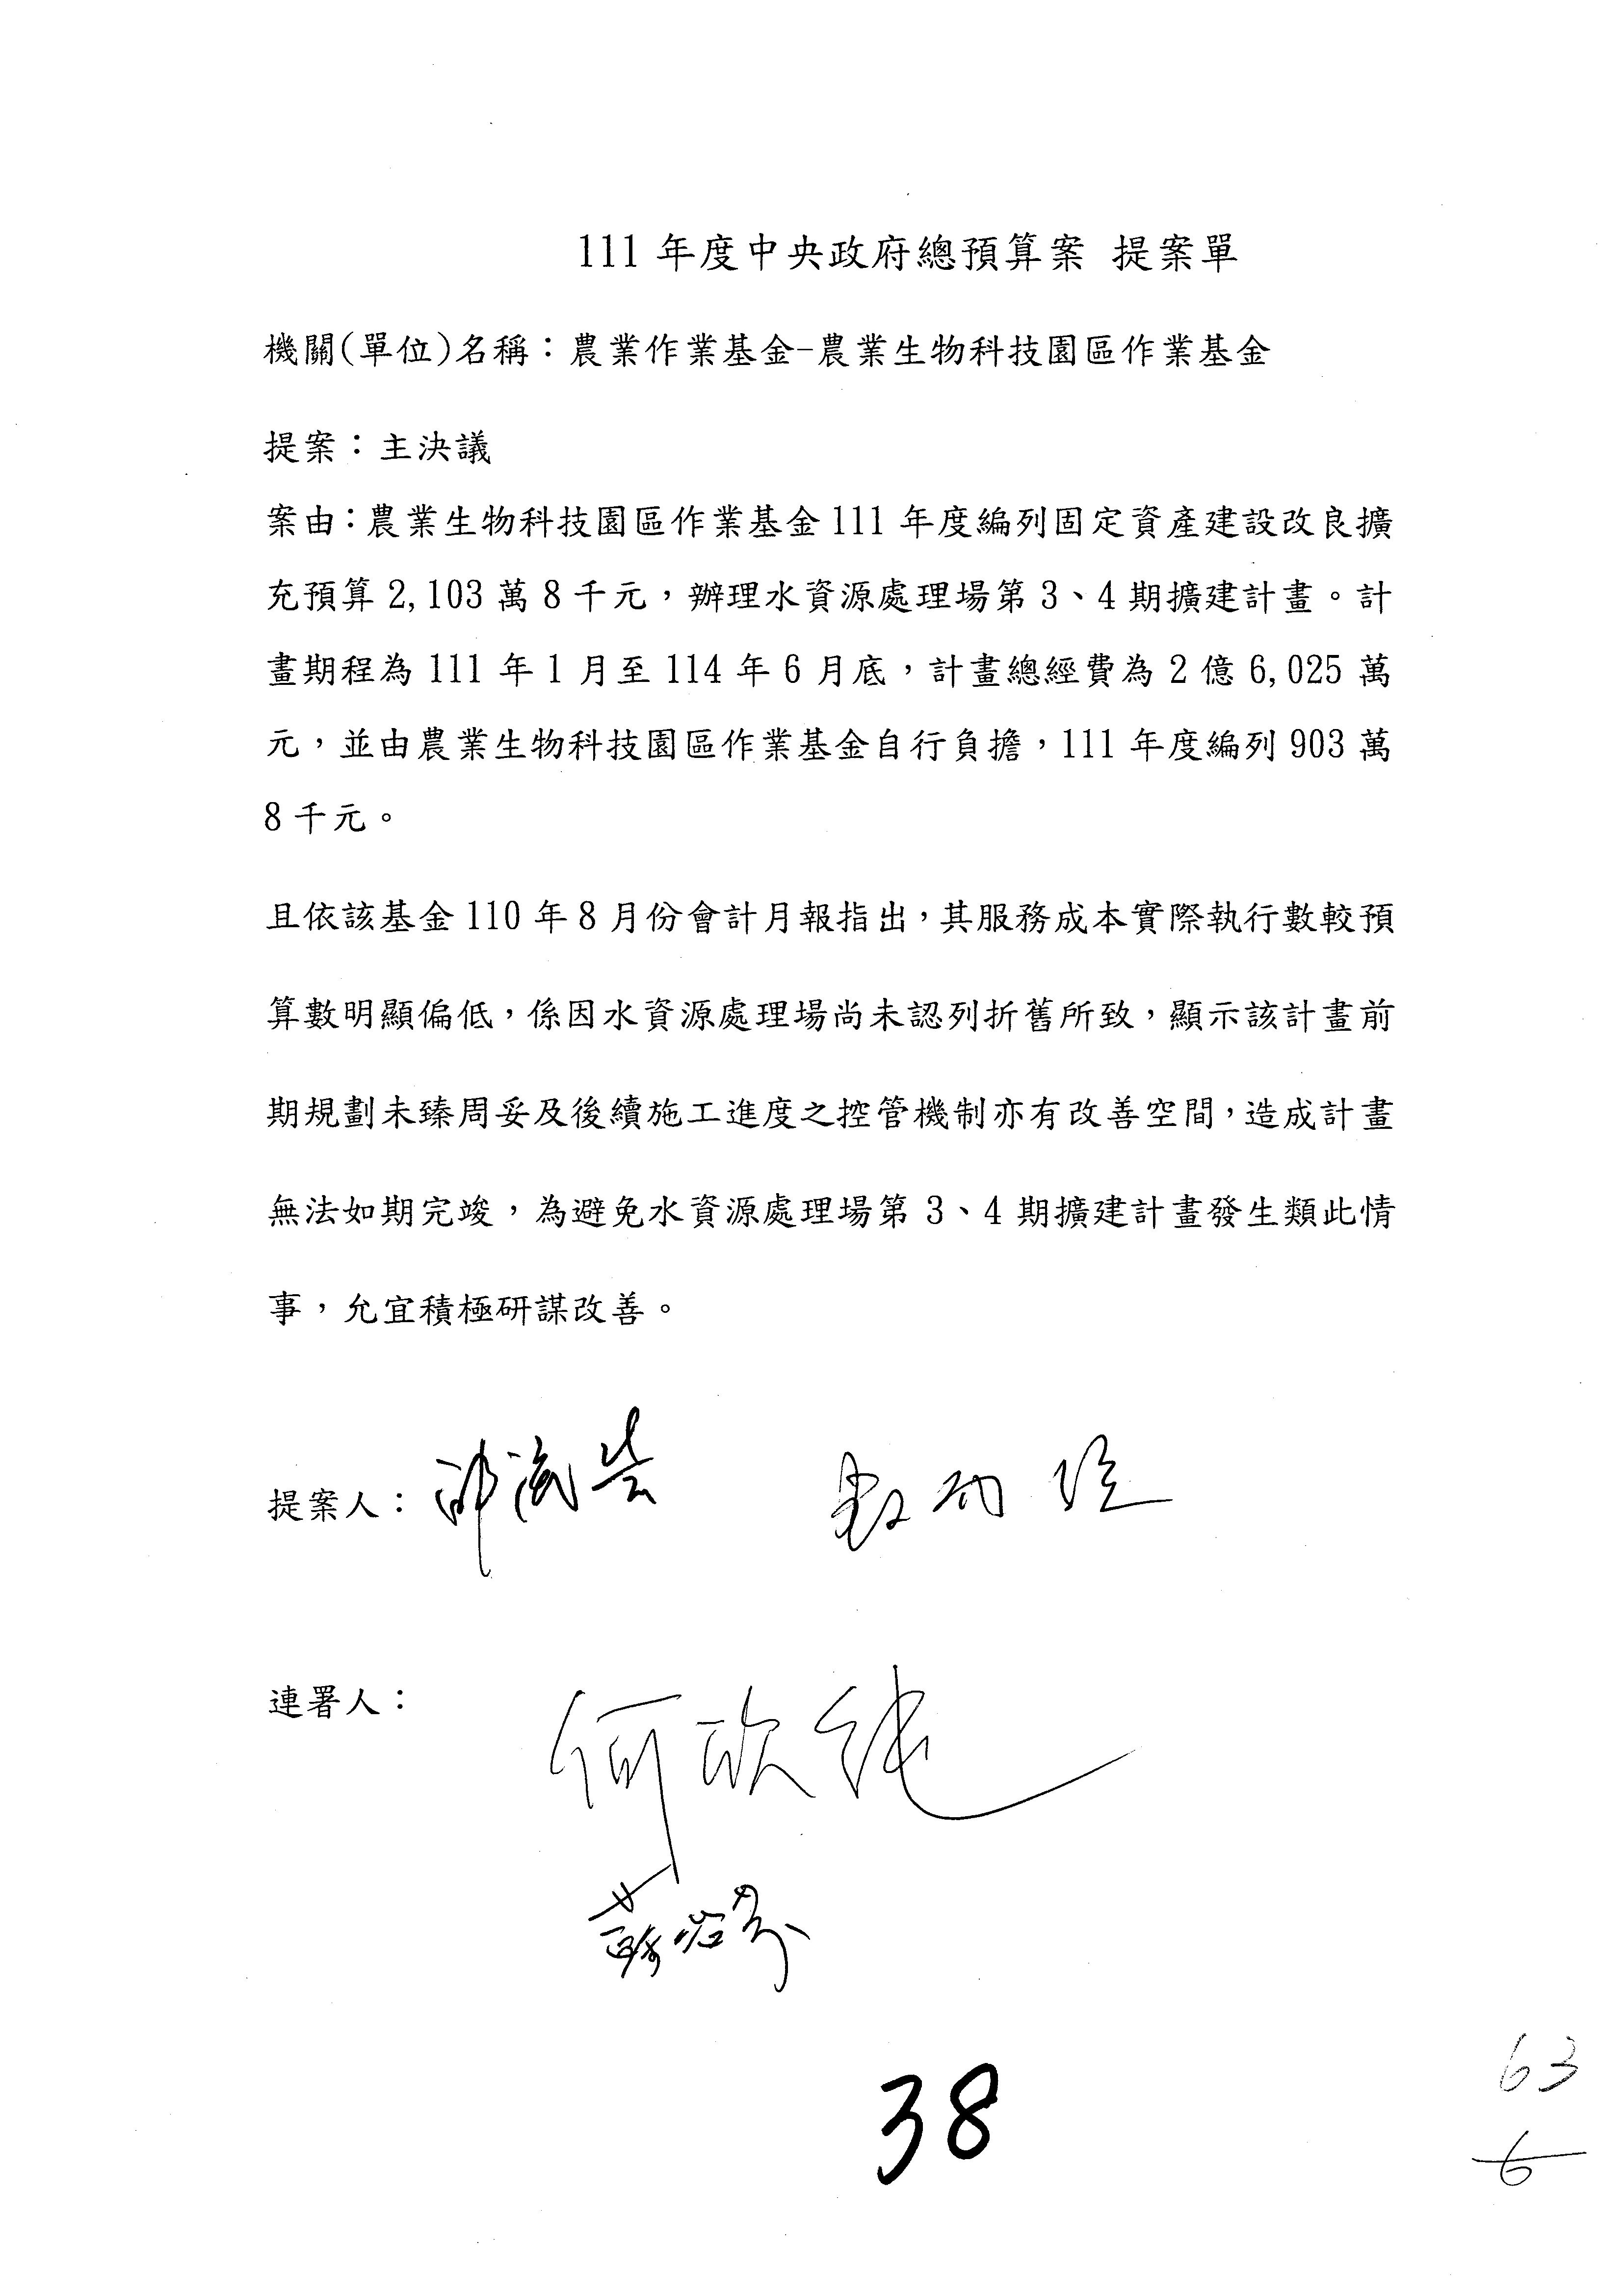 111 年度中央政府總預算案 提案單
機關(單位)名稱：農業作業基金-農業生物科技園區作業基金
提案：主決議
案由：農業生物科技園區作業基金 111 年度編列固定資產建設改良擴
充預算 2,103 萬 8 千元，辦理水資源處理場第 3、4 期擴建計畫。計
畫期程為 111 年 1 月至 114 年 6 月底，計畫總經費為 2 億 6,025 萬
元，並由農業生物科技園區作業基金自行負擔，111 年度編列 903 萬
8 千元。
且依該基金 110 年 8 月份會計月報指出，其服務成本實際執行數較預
算數明顯偏低，係因水資源處理場尚未認列折舊所致，顯示該計畫前
期規劃未臻周妥及後續施工進度之控管機制亦有改善空間，造成計畫
無法如期完竣，為避免水資源處理場第 3、4 期擴建計畫發生類此情
事，允宜積極研謀改善。
提案人：
連署人：
何欣純
蘇治芬
38
63
6